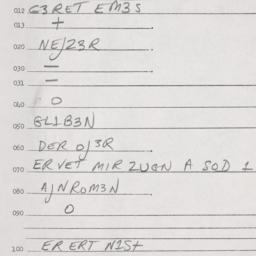 012 G3RET EM3S
013 +
020 NEJZ3R
030 —
031 =
040 O
050 GL1B3N
060 DER OJ3R
070 ERVET MIR ZUGN A SOD 1
080 AJNROM3N
090 O
100 ER ERT N1S+